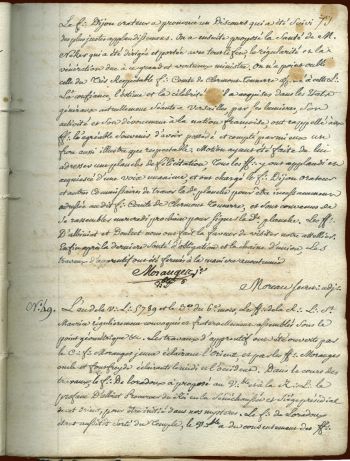 Le f∴ Dijon orateur a prononcé un Discours qui a été suivi
des plus justes applaudissemens. On a ensuite proposé la Santé de M.
Necker qui a été dirigée et portée avec toute la régularité et la
vénération due à un grand et vertueux ministre. On n'a point oublié
celle du Très Respectable f∴ Comte de Clermont Tonnerre
La confiance, l'estime et la célébrité qu'il a acquises dans les Etats
généraux actuellement Séants à Versailles par les lumières son
activité et son dévouement à la nation françoise ont rappellé aux
ff∴ l'agréable Souvenir d'avoir possédé et compté parmi eux un
frère aussi illustre que respectable. Motion ayant été faite de lui
adresser une planche de félicitation. Tous les ff∴ y ont applaudi et
acquiescé d'une voix unanime et ont chargé le f∴ Dijon orateur
et autres Commissaires de tracer la de. planche pour être incessamment
adressée au dit f∴ Comte de Clermont Tonnerre, et sont convenus de
se rassembler mercredi prochain pour signer la de. planche. Les ff∴
nous ont fait la faveur de visiter notre attellier.
Enfin après la dernière Santé d'obligation et la chaine d'union, Les
travaux d'apprentif ont été fermés à la manière accoutumée
Moranges
Moreau Secre. adj∴
N°. 49. L'an de la V∴ L∴ 5789 et le du 6e. mois, les ff∴ de la R∴ L∴ St.
Maurice régulièrement convoqués et fraternellement assemblés sous le
point géométrique &c. Les travaux d'apprentif ont été ouverts par
le C∴ f∴ Moranges jeune éclairant l'Orient, et par les ff∴ Moranges
oncle et éclairants le midi et l'occident. Dans le cours des
travaux, le f∴ De Loradoux a proposé au V∴ et à la R∴ L∴ le
profane Procureur du Roi en la Sénéchaussée et Siège présidial
pour être initié dans nos mystères. Le f∴ de Loradoux
sorti du Temple, le V∴ a du consentement des ff∴